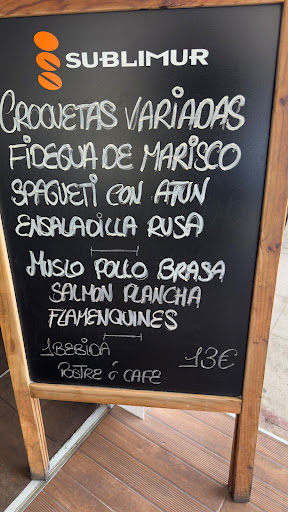 SUBLIMUR
CROQUETAS VARIADAS
FIDEGUA DE MARISCO
SPAGUETI CON ATUN
ENSALADILLA RUSA
MUSLO POLLO BRASA
SALMON PLANCHA
FLAMENQUINES
1 BEBIDA
POSTRE Ó CAFE
13€